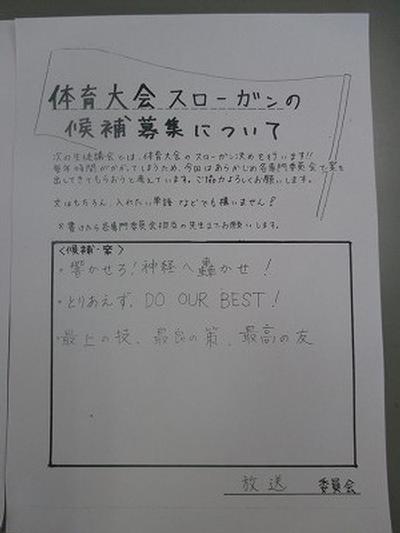 体育大会スローガンの
候補募集について
次の生徒議会では、体育大会のスローガン決めを行います!!
毎年時間がかかってしまうため、今回はあらかじめ各専門委員会で案を
出してきてもらおうと考えています。ご協力よろしくお願いします。
文はもちろん、入れたい単語 などでも構いません!
※書けたら各専門委員会担当の先生までお願いします。
<候補・案>
・響かせろ!神経へ轟かせ!
・とりあえず、DO OUR BEST!
・最上の技、最良の策、最高の友
放送 委員会